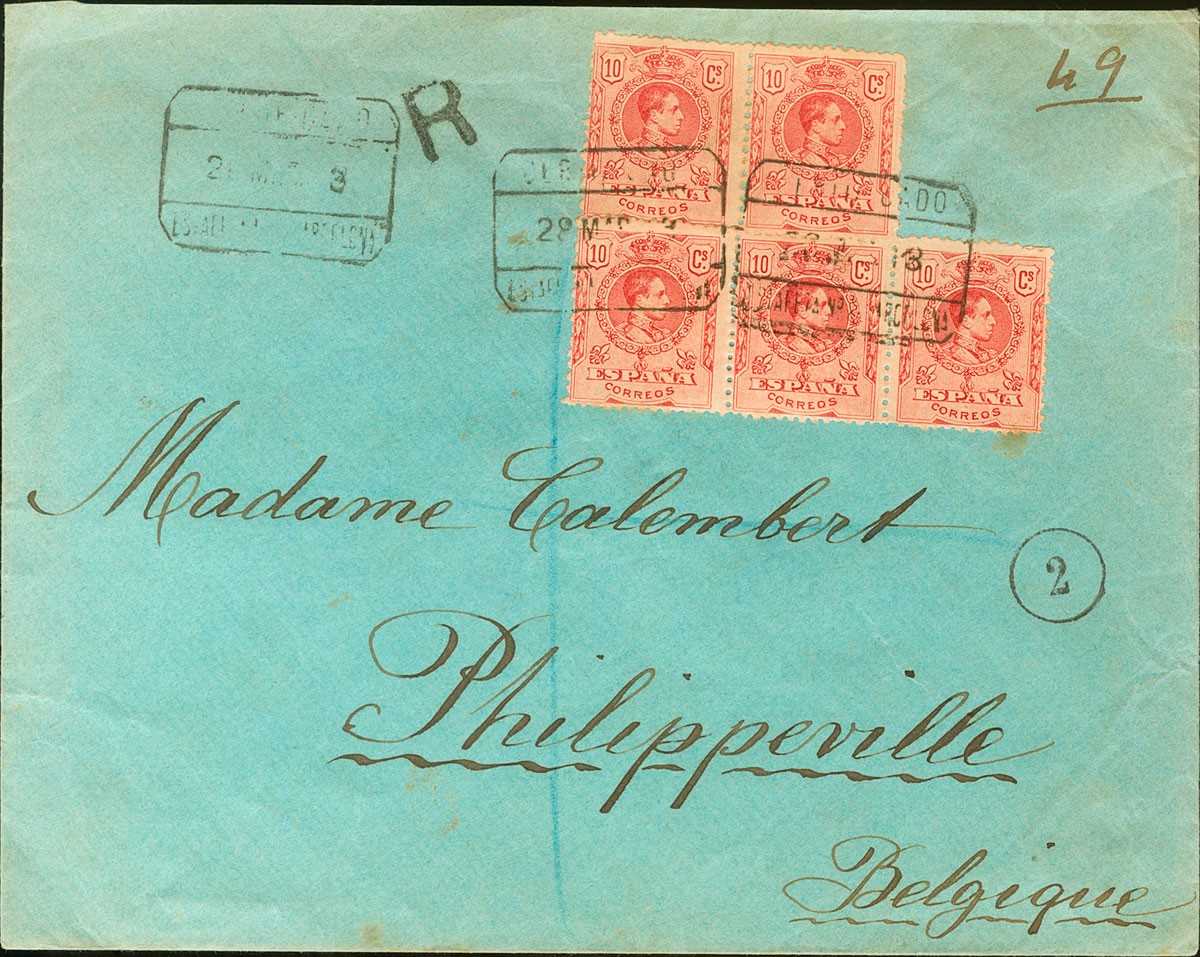 49
R
10 Cs
ESPAÑA
CORREOS
10 Cs
ESPAÑA
CORREOS
28 MAR
3
10 Cs
ESPAÑA
CORREOS
10 Cs
ESPAÑA
CORREOS
10 Cs
ESPAÑA
CORREOS
Madame Calembert
2
Philippeville
Belgique